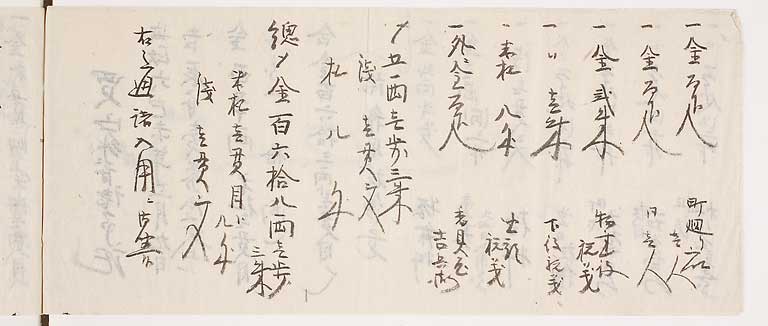 一金百疋 町廻り衆 壱人
一金百疋 同壱人
一金弐朱 物書役 祝義
一〃壱朱 下役祝義
一米札八匁 出頭祝義
一外ニ金百疋 吉兵衛
〆五両壱歩三朱
銭壱貫文
札八匁
惣〆金百六拾八両壱歩三朱
米札壱貫目ト八匁
銭壱貫文
右之通諸入用ニ御座候